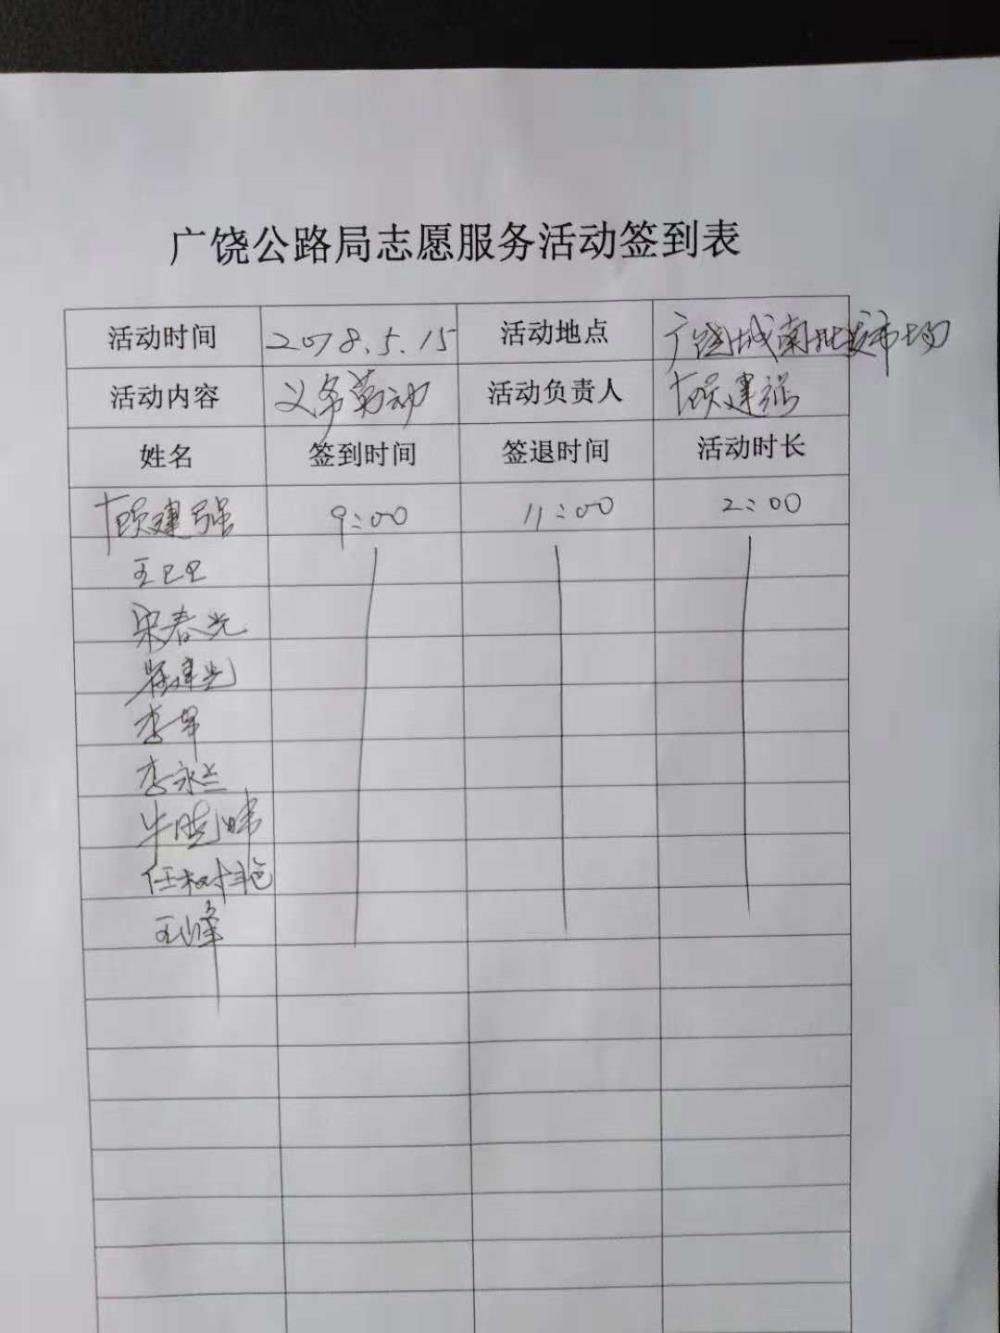 广饶公路局志愿服务活动签到表
活动时间 2018.5.15 活动地点 广饶城南批发市场
活动内容 义务劳动 活动负责人 建强
姓名 签到时间 签退时间 活动时长
建强 9:00 11:00 2:00
王
宋春光
建光
李军
李永兰
牛晓
任树
王峰